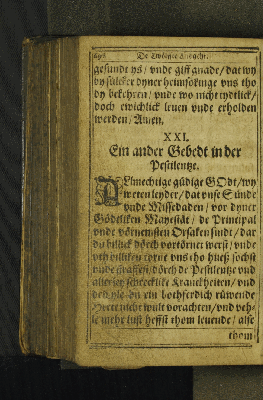 De Ewige
gesundt ys / vnde giff gnade / dat wy
vy sülcker dyner heimsökinge vns tho
dy bekehren / vnde wo nicht tydtlick /
doch ewichlick leuen vnde erholden
werden / Amen.
XXI.
Ein ander Gebedt in der
Pestilentze.
ALmechtige güdige GOdt / wy
weten leyder / dat vnse Sünde
vnde Missedaden / vor dyner
Gödtliken Mayestät / de Principal
vnde vörnemsten Orsaken sindt / dar
du billick dörch vortörnet werst / vnde
vth billiken torne vns tho huß sochst
vnde straffest / dörch de Pestilentz vnd
allerley schrecklike Kranckheiten / vnd
dewyle du ein bothferdich rüwende
Herte nicht wult vorachten / vnd veh-
le mehr lust heffst thom leuende / alse
thom